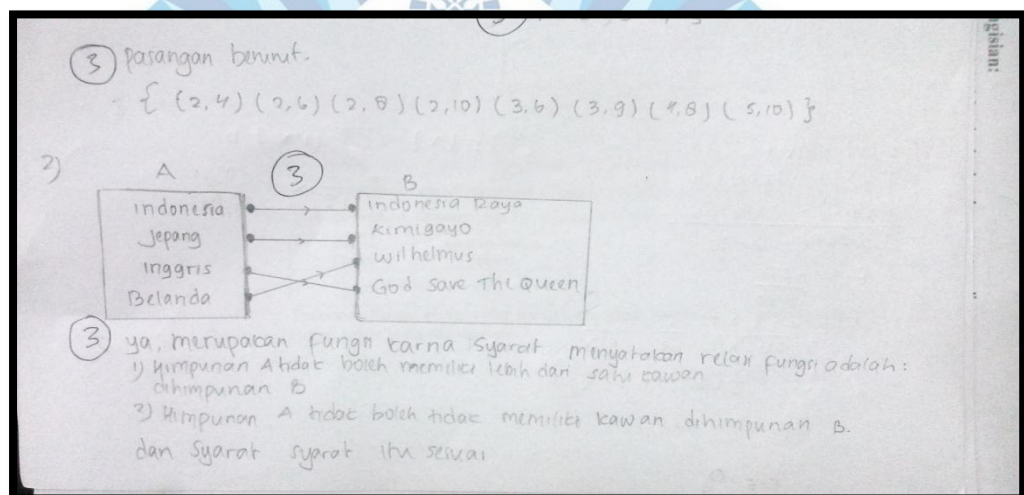 ngisian:
3 pasangan berurut.
{ (2,4) (2,6) (2,8) (2,10) (3,6) (3,9) (4,8) (5,10) }
2)
A 3 B
indonesia
Jepang
inggris
Belanda
indonesia Raya
kimigayo
wilhelmus
God Save The Queen
3 ya, merupakan fungsi karna syarat menyatakan relasi fungsi adalah:
1) Himpunan A tidak boleh memiliki lebih dari satu kawan
dihimpunan B
2) Himpunan A tidak boleh tidak memiliki kawan dihimpunan B.
dan syarat syarat itu sesuai